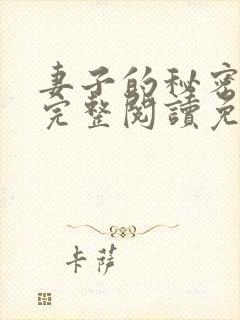 妻子的秘密
完整閱讀免
卡薩